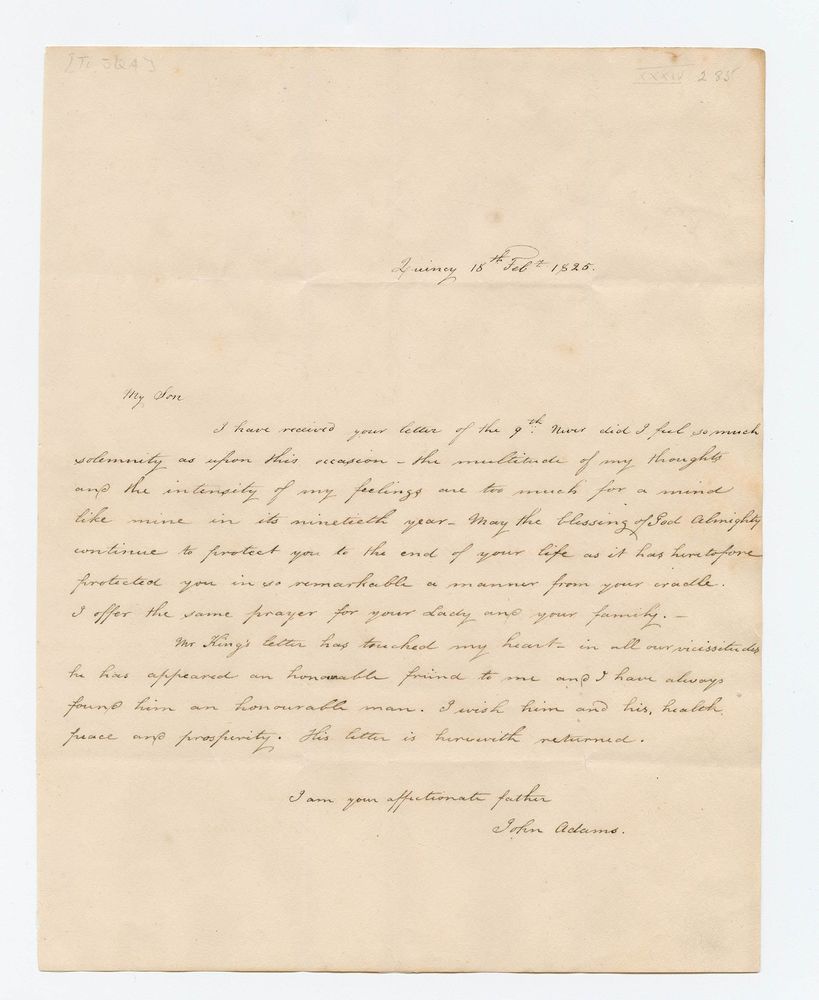 [To JQA]
XXXIV 285
Quincy 18th Feby 1825.
My Son
I have received your letter of the 9th. Never did I feel so much
solemnity as upon this occasion – the multitude of my thoughts
and the intensity of my feelings are too much for a mind
like mine in its ninetieth year – May the blessing of God Almighty
continue to protect you to the end of your life as it has heretofore
protected you in so remarkable a manner from your cradle.
I offer the same prayer for your Lady and your family. –
Mr King's letter has touched my heart – in all our vicissitudes
he has appeared an honorable friend to me and I have always
found him an honourable man. I wish him and his, health,
peace and prosperity. His letter is herewith returned.
I am your affectionate father
John Adams.